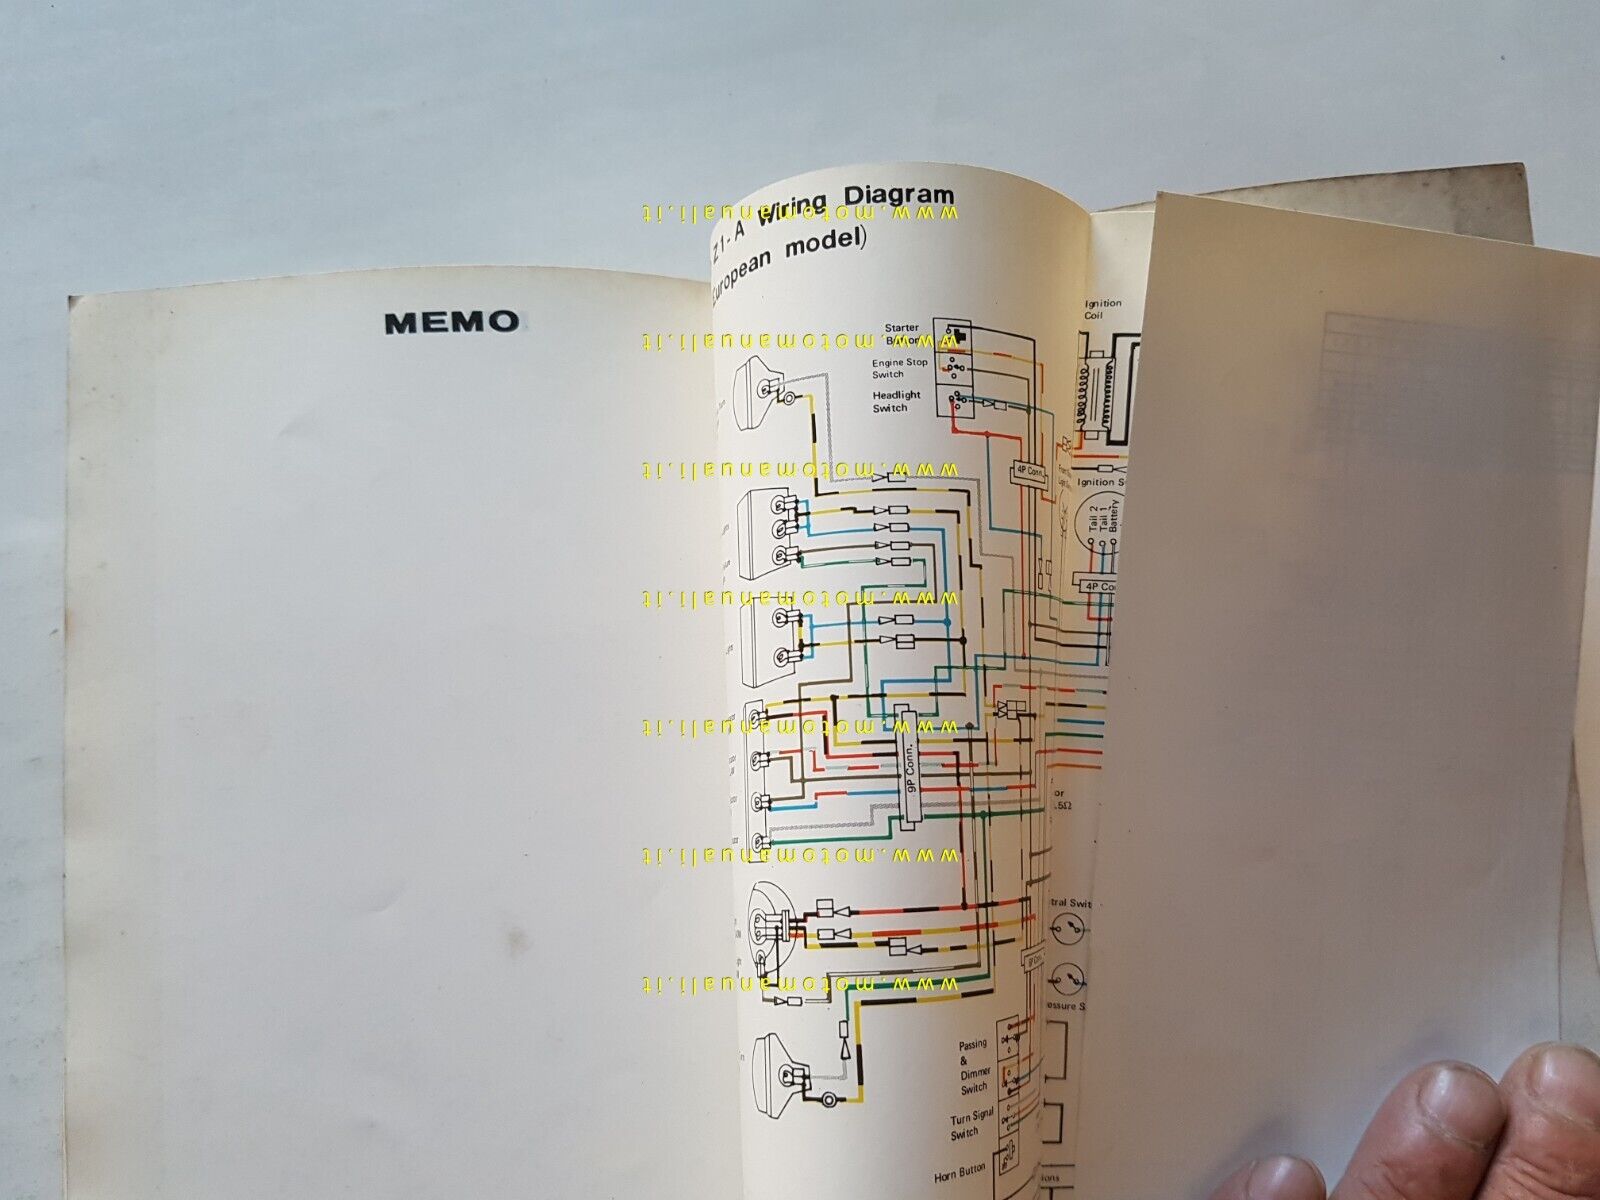 MEMO
Z1-A Wiring Diagram
European model)
www.motomanuali.it
www.motomanuali.it
www.motomanuali.it
www.motomanuali.it
www.motomanuali.it
www.motomanuali.it
www.motomanuali.it
Starter
Button
Engine Stop
Switch
Headlight
Switch
Ignition
Coil
4P Conn.
Ignition S
Tail 2
Tail 1
Battery
4P Co
9P Conn.
.5Ω
tral Swit
essure S
Passing
&
Dimmer
Switch
Turn Signal
Switch
Horn Button